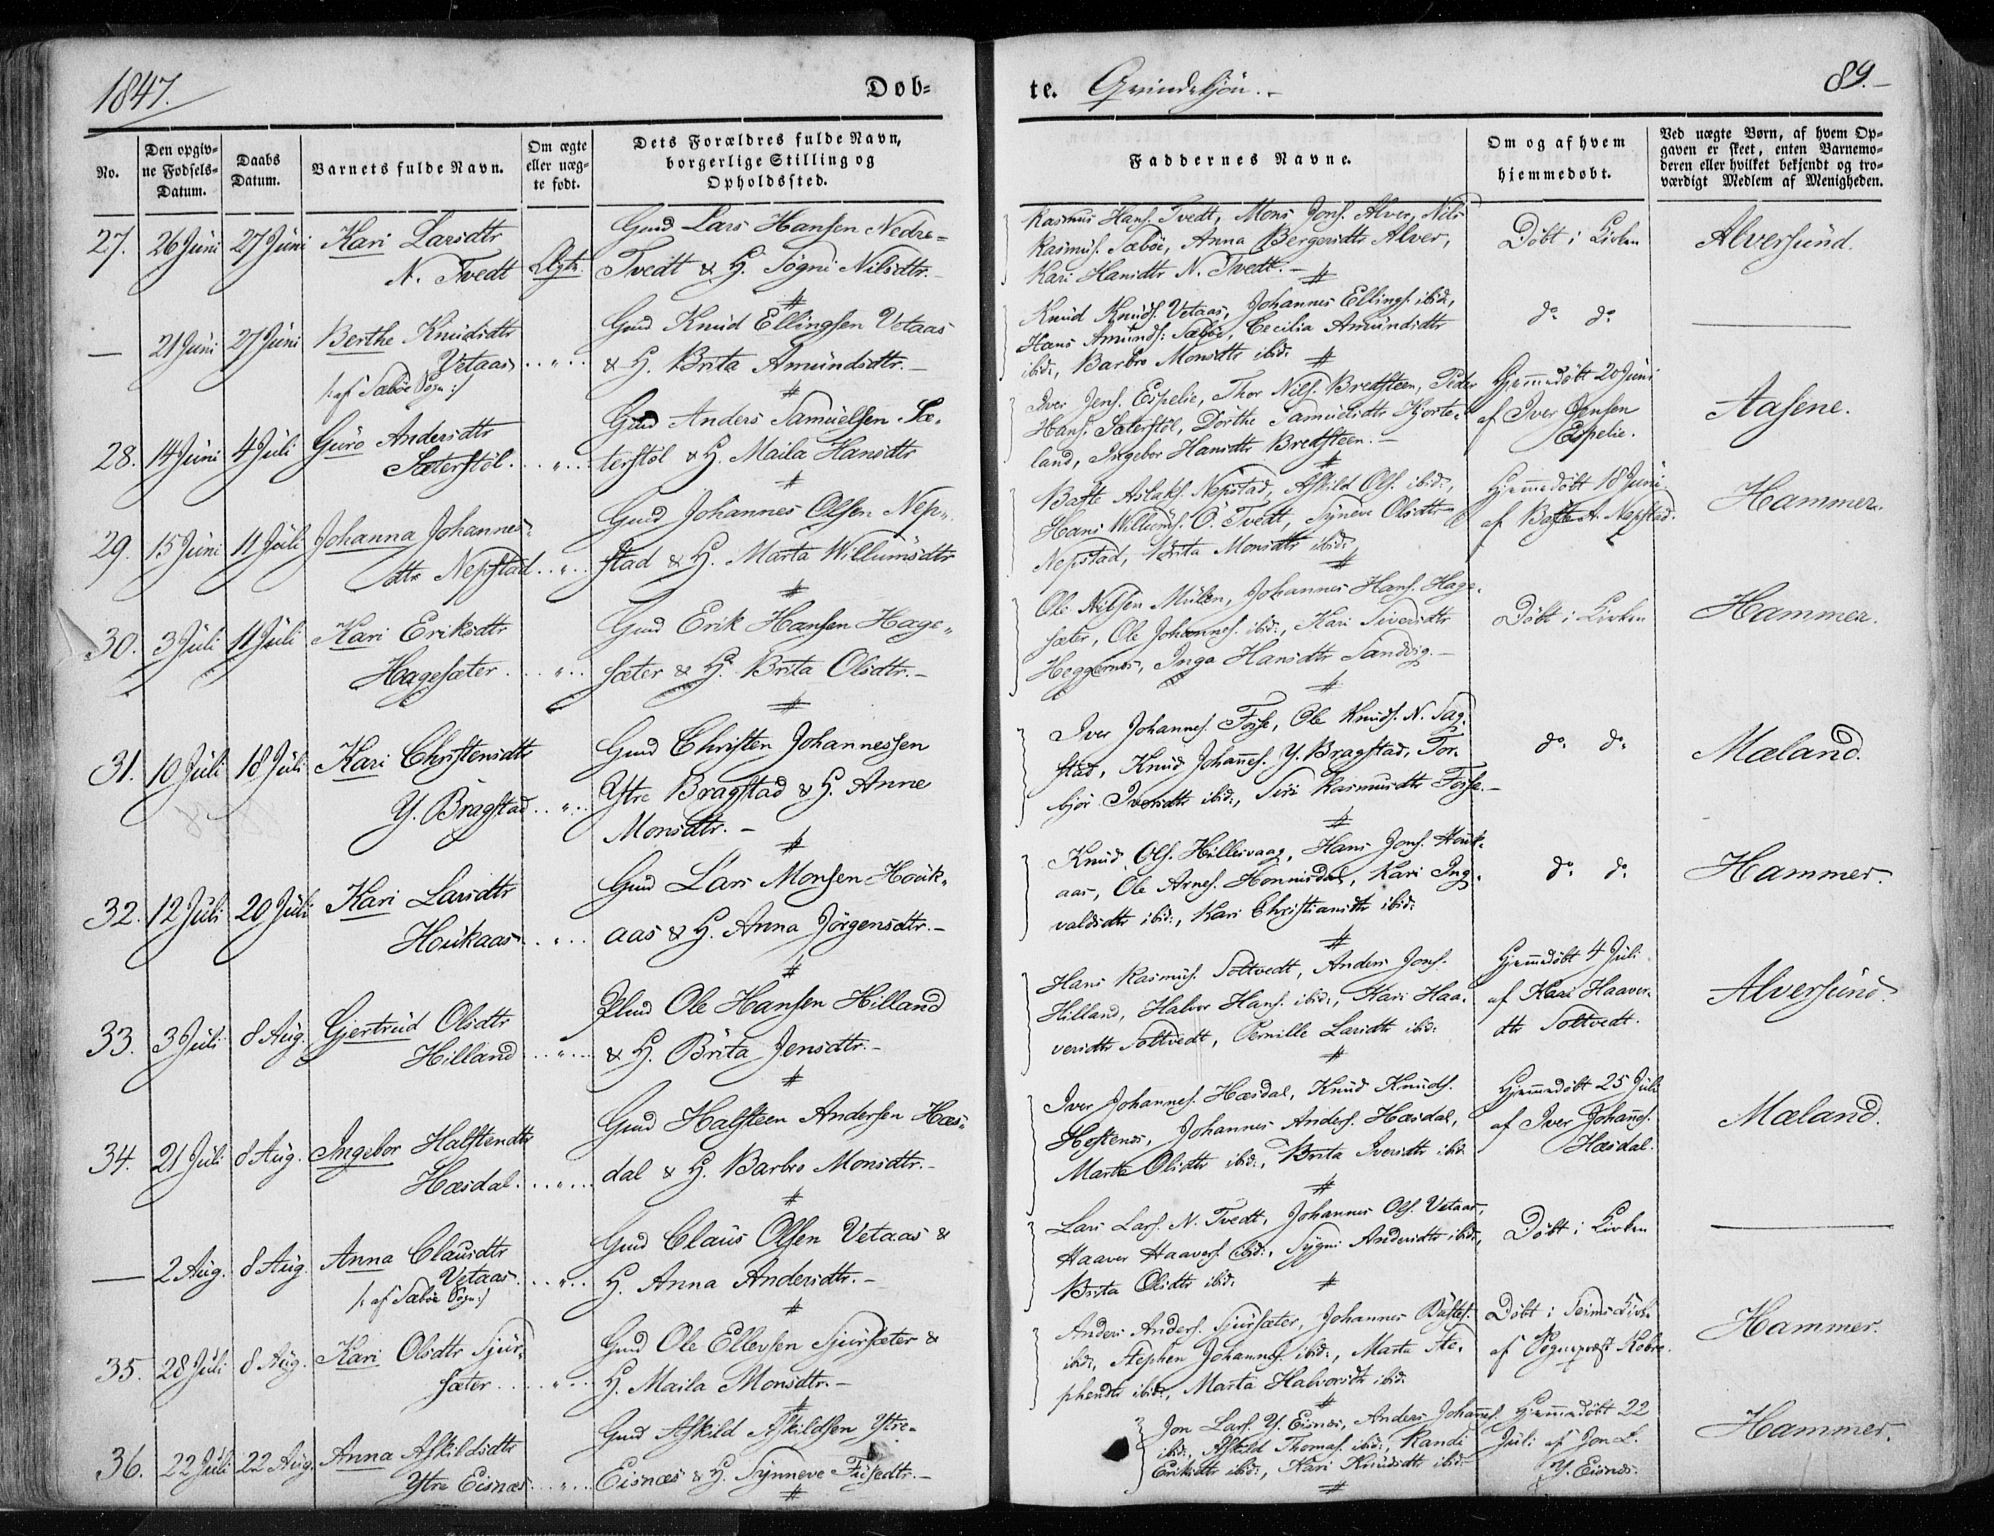 1847.
Døb-
te. Qvindekjön.-
89.-
No.
Den opgiv-
ne Fødsels-
Datum.
Daabs
Datum.
Barnets fulde Navn.
Om ægte
eller uæg-
te født.
Dets Forældres fulde Navn,
borgerlige Stilling og
Opholdssted.
Faddernes Navne.
Om og af hvem
hjemmedøbt.
Ved uægte Børn, af hvem Op-
gaven er skeet, enten Barnemo-
deren eller hvilket bekjendt og tro-
værdigt Medlem af Menigheden.
27. 26 Juni 27 Juni Kari Larsdtr
N. Tvedt Ægte.
Gmd Lars Hansen Nedre-
Tvedt & H. Sögni Nilsdtr.-
Rasmus Hans. Tvedt, Mons Jons. Alver, Nils
Rasmus. Sæböe, Anna Bergersdtr Alver,
Kari Hansdtr N. Tvedt.-
Döbt i Kirken
Alversund.
— 21 Juni 27 Juni Berthe Knudsdtr
Vetaas
/: af Sæböe Sogn :/
Gmd Knud Ellingsen Vetaas
& H. Brita Amundsdtr.-
Knud Knuds. Vetaas, Johannes Ellings. ibid.,
Hans Amunds. Sæböe, Cecilia Amundsdtr
ibid., Barbro Monsdtr ibid.
do do
28. 14 Juni 4 Juli Guro Andersdtr
Sæterstöl.
Gmd Anders Samuelsen Sæ-
terstöl & H. Maila Hansdtr
Iver Jens. Espelie, Thor Nils. Bredsteen, Peder
Hans. Sæterstöl, Dorthe Samuelsdtr Hjorte-
land, Ingebor Hansdtr Bredsteen.-
Hjemmedöbt 20 Juni
af Iver Jensen
Espelie.
Aasene.
29. 15 Juni 11 Juli Johanna Johannes-
dtr Nepstad
Gmd Johannes Olsen Nep-
stad & H. Marta Willumsdtr
Aslaks. Nepstad, Askild Ols. ibid.,
Hans Willums. Ö. Tvedt, Syneve Olsdtr
Nepstad, Brita Monsdtr ibid.
Hjemmedöbt 18 Juni
af A. Nepstad.
Hammer.
30. 3 Juli 11 Juli Kari Eriksdtr
Hagesæter
Gmd Erik Hansen Hage-
sæter & H. Brita Olsdtr.-
Ole Nilsen Mülen, Johannes Hans. Hage-
sæter, Ole Johannes. ibid., Kari Siversdtr
Heggernes, Inga Hansdtr Sandvig.-
Döbt i Kirken
Hammer.
31. 10 Juli 18 Juli Kari Christensdtr
Y. Bragstad
Gmd Christen Johannessen
Ytre Bragstad & H. Anne
Monsdtr.-
Iver Johannes. Fosse, Ole Knuds. N. Sag-
stad, Knud Johannes. Y. Bragstad, Tor-
björ Iversdtr ibid., Siri Rasmusdtr Fosse.-
do do
Mæland.
32. 12 Juli 20 Juli Kari Larsdtr
Houkaas
Gmd Lars Monsen Houk-
aas & H. Anna Jörgensdtr.-
Knud Ols. Hillesvaag, Hans Jons. Houk-
aas, Ole Arnes. Honnisdal, Kari Ing-
valdsdtr ibid., Kari Christiansdtr ibid.
do do
Hammer.
33. 3 Juli 8 Aug. Gjertrud Olsdtr
Hilland
Ole Hansen Hilland
& H. Brita Jensdtr.-
Hans Rasmus. Soltvedt, Anders Jons.
Hilland, Halvor Hans. ibid., Kari Haa-
versdtr Soltvedt, Pernille Larsdtr ibid.
Hjemmedöbt 4 Juli
af Kari Haavers-
dtr Soltvedt.
Alversund.
34. 21 Juli 8 Aug. Ingebor Halstendtr
Hæsdal.
Gmd Halsteen Andersen Hæs-
dal & H. Barbro Monsdtr.-
Iver Johannes. Hæsdal, Knud Knuds.
Hestenes, Johannes Anders. Hæsdal,
Marta Olsdtr ibid., Brita Iversdtr ibid.
Hjemmedöbt 25 Juli
af Iver Johans.
Hæsdal.
Mæland.
— 2 Aug. 8 Aug. Anna Clausdtr
Vetaas.
/: af Sæböe Sogn :/
Gmd Claus Olsen Vetaas &
H. Anna Andersdtr.-
Lars Lars. N. Tvedt, Johannes Ols. Vetaas,
Haaver Haavers. ibid., Sygni Andersdtr ibid.,
Brita Olsdtr ibid.
Döbt i Kirken
35. 28 Juli 8 Aug. Kari Olsdtr Sjur-
sæter
Gmd Ole Ellevsen Sjursæter &
H. Maila Monsdtr.-
Anders Anders. Sjursæter, Johannes
ibid., Stephen Johannes. ibid., Marta Ste-
phensdtr ibid., Marta Halvorsdtr ibid.
Döbt i Seims Kirke
af Sognepræst Kobro.
Hammer.
36. 22 Juli 22 Aug. Anna Askildsdtr
Ytre Eisnæs
Gmd Askild Askildsen Ytre-
Eisnæs & H. Synneve
Jon Lars. Y. Eisnæs, Anders Johannes.
ibid., Askild Thomas. ibid., Randi
Eriksdtr ibid., Kari Knudsdtr ibid.
Hjemmedöbt 22
Juli af Jon L.
Y. Eisnæs.
Hammer.